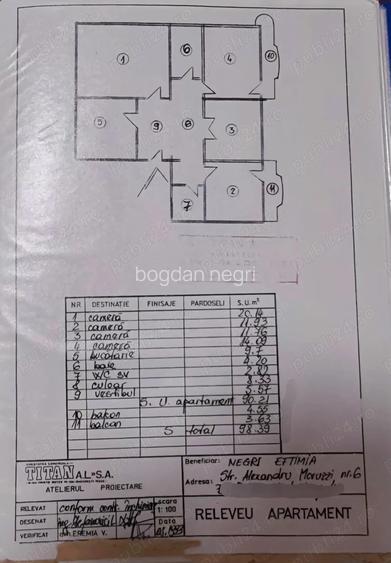 1
6
4
10
5
9
8
3
7
2
11
bogdan negri
NR DESTINAȚIE FINISAJE PARDOSELI S.U. m²
1 cameră 20.14
2 cameră 11.93
3 cameră 11.76
4 cameră 14.09
5 bucătărie 9.7
6 baie 4.20
7 W/C sv 2.82
8 culoar 8.33
9 vestibul
S. U. apartament 90.21
10 balcon 4.55
11 balcon 3.63
S total 98.39
TITAN A.L. S.A.
ATELIERUL PROIECTARE
Beneficiar: NEGRI EFTIMIA
Adresa: Str. Alexandru Moruzzi, nr. 6
RELEVAT conform
scara 1:100
DESENAT
Data
VERIFICAT EREMIA V.
RELEVEU APARTAMENT